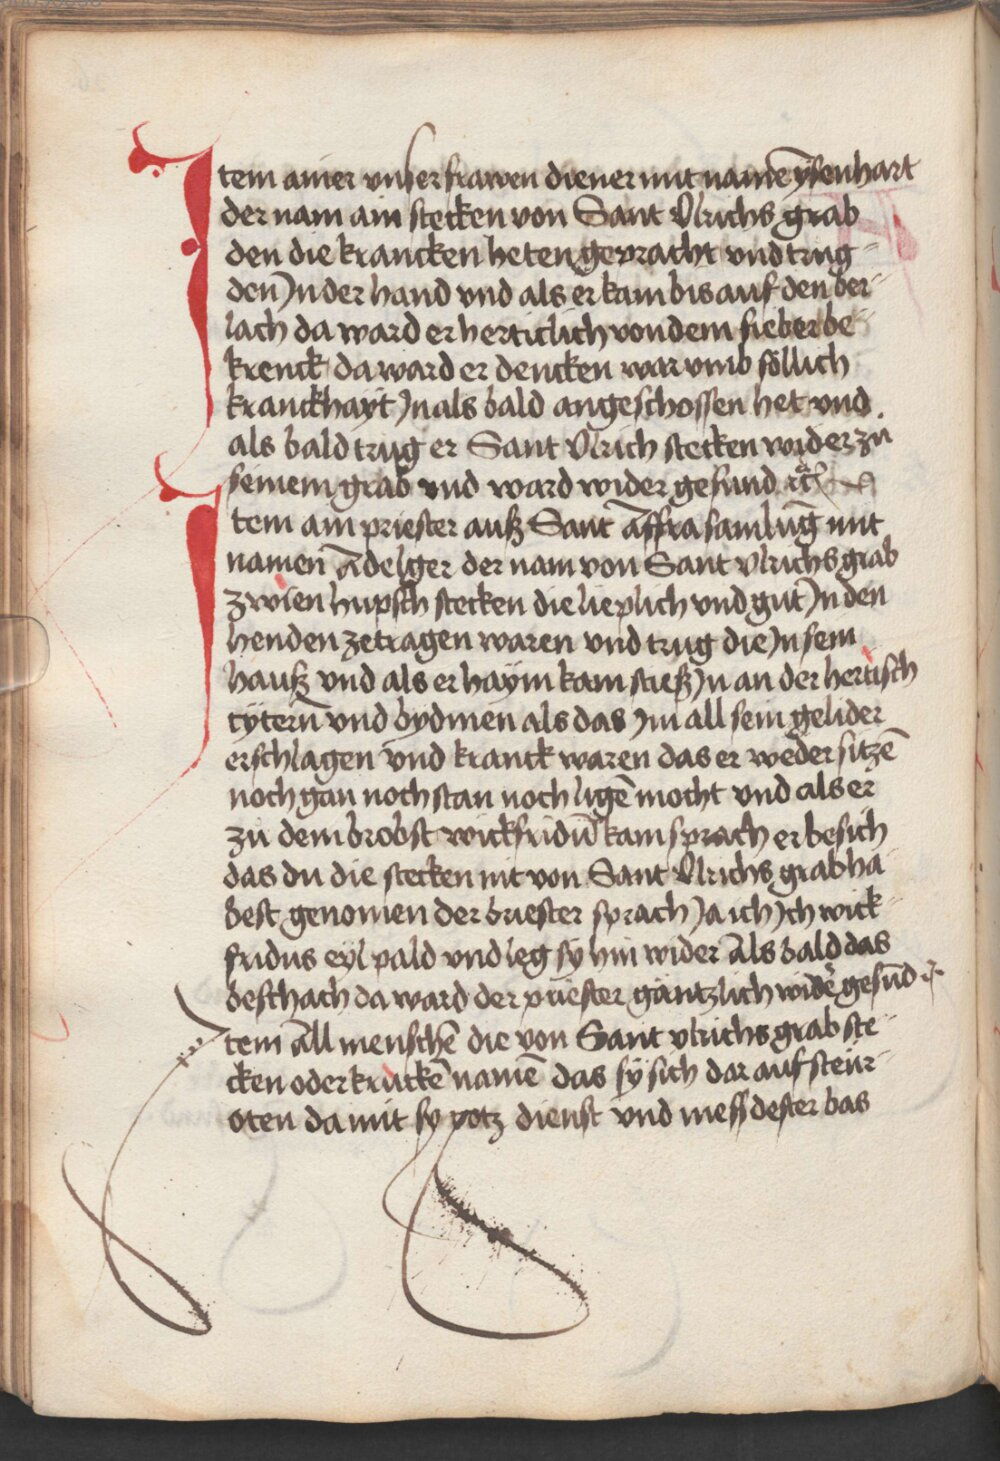 Item ainer vnser frawen diener mit namē ysenhart
der nam ain stecken von Sant Vlrichs grab
den die krancken heten gepracht vnd trug
den Jn der hand vnd als er kam bis auf den ber
lach da ward er herticlich von dem fieber be
krenckt da ward er dencken warvmb söllich
kranckhayt Jn als bald angeschossen het vnd
als bald trug er Sant Vlrich stecken wider zu
seinem grab vnd ward wider gesund
Item ain priester auß Sant affra samlūg mit
namen Adelger der nam von Sant vlrichs grab
zwien hupsch stecken die lieplich vnd gut Jn den
henden zetragen waren vnd trug die Jn sein
hauß vnd als er haÿm kam stieß Jn an der hertisch
rÿtern vnd bydmen als das Jm all sein gelider
erschlagen vnd kranck waren das er weder sitzē
noch gan noch stan noch ligē mocht vnd als er
zu dem brobst wickfridū kam sprach er besich
das du die stecken nit von Sant Vlrichs grab ha
best genomen der briester sprach Ja ich Jch wick
fridus eyl pald vnd leg sy hin wider als bald das
beschach da ward der priester gantzlich wider gesūd
Item all menschē die von Sant vlrichs grab ste
cken oder kruckē namē das sÿ sich dar auf steür
oten da mit sy gotz dienst vnd mess dester bas